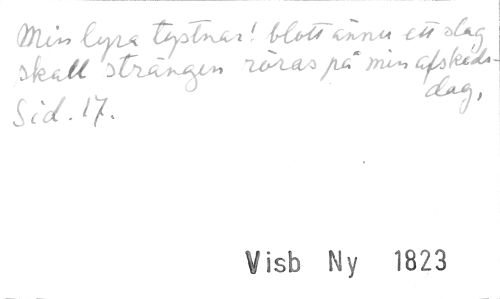 Min lyra tystnar! blott ännu ett slag
skall strängen röras på min afskeds-
dag,
Sid. 17.
Visb Ny 1823